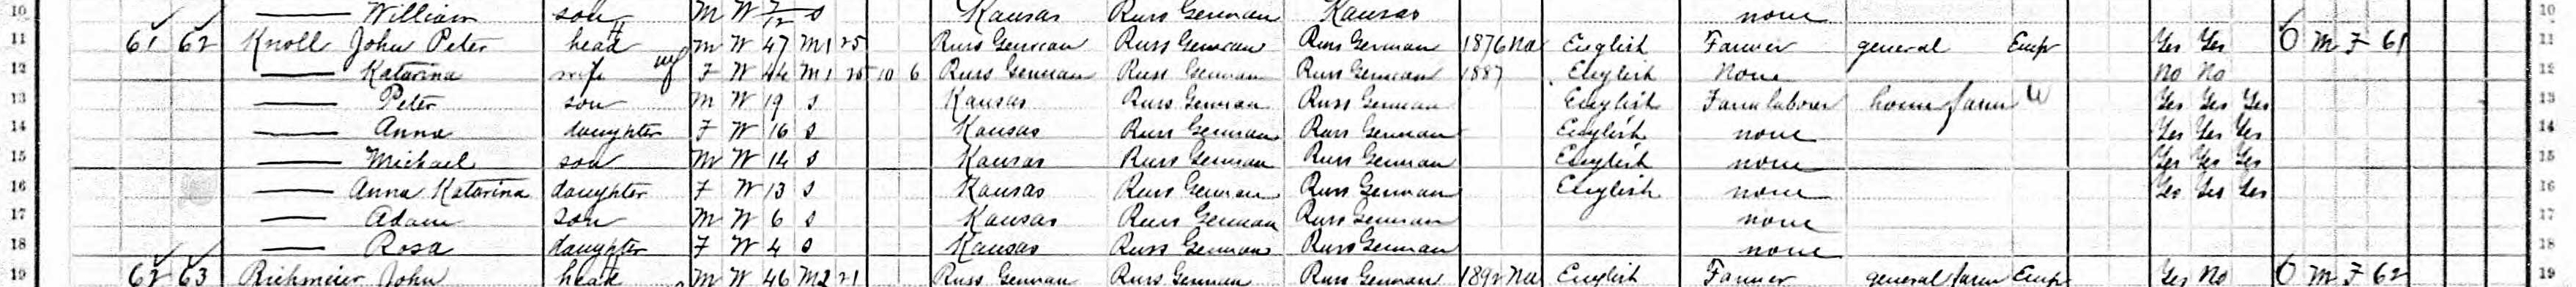 10 — William son M W 7/12 S Kansas Russ German Kansas none 10
11 61 62 Knoll John Peter head M W 47 M1 25 Russ German Russ German Russ German 1876 Na English Farmer general Emp Yes Yes O M F 61 11
12 — Katarina wife F W 44 M1 25 10 6 Russ German Russ German Russ German 1887 English None No No 12
13 — Peter son M W 19 S Kansas Russ German Russ German English Farm labourer home farm W Yes Yes Yes 13
14 — Anna daughter F W 16 S Kansas Russ German Russ German English none Yes Yes Yes 14
15 — Michael son M W 14 S Kansas Russ German Russ German English none Yes Yes Yes 15
16 — Anna Katarina daughter F W 13 S Kansas Russ German Russ German English none Yes Yes Yes 16
17 — Adam son M W 6 S Kansas Russ German Russ German none 17
18 — Rosa daughter F W 4 S Kansas Russ German Russ German none 18
19 62 63 Richmeier John head M W 46 M2 21 Russ German Russ German Russ German 1892 Na English Farmer general farm Emp Yes No O M F 62 19